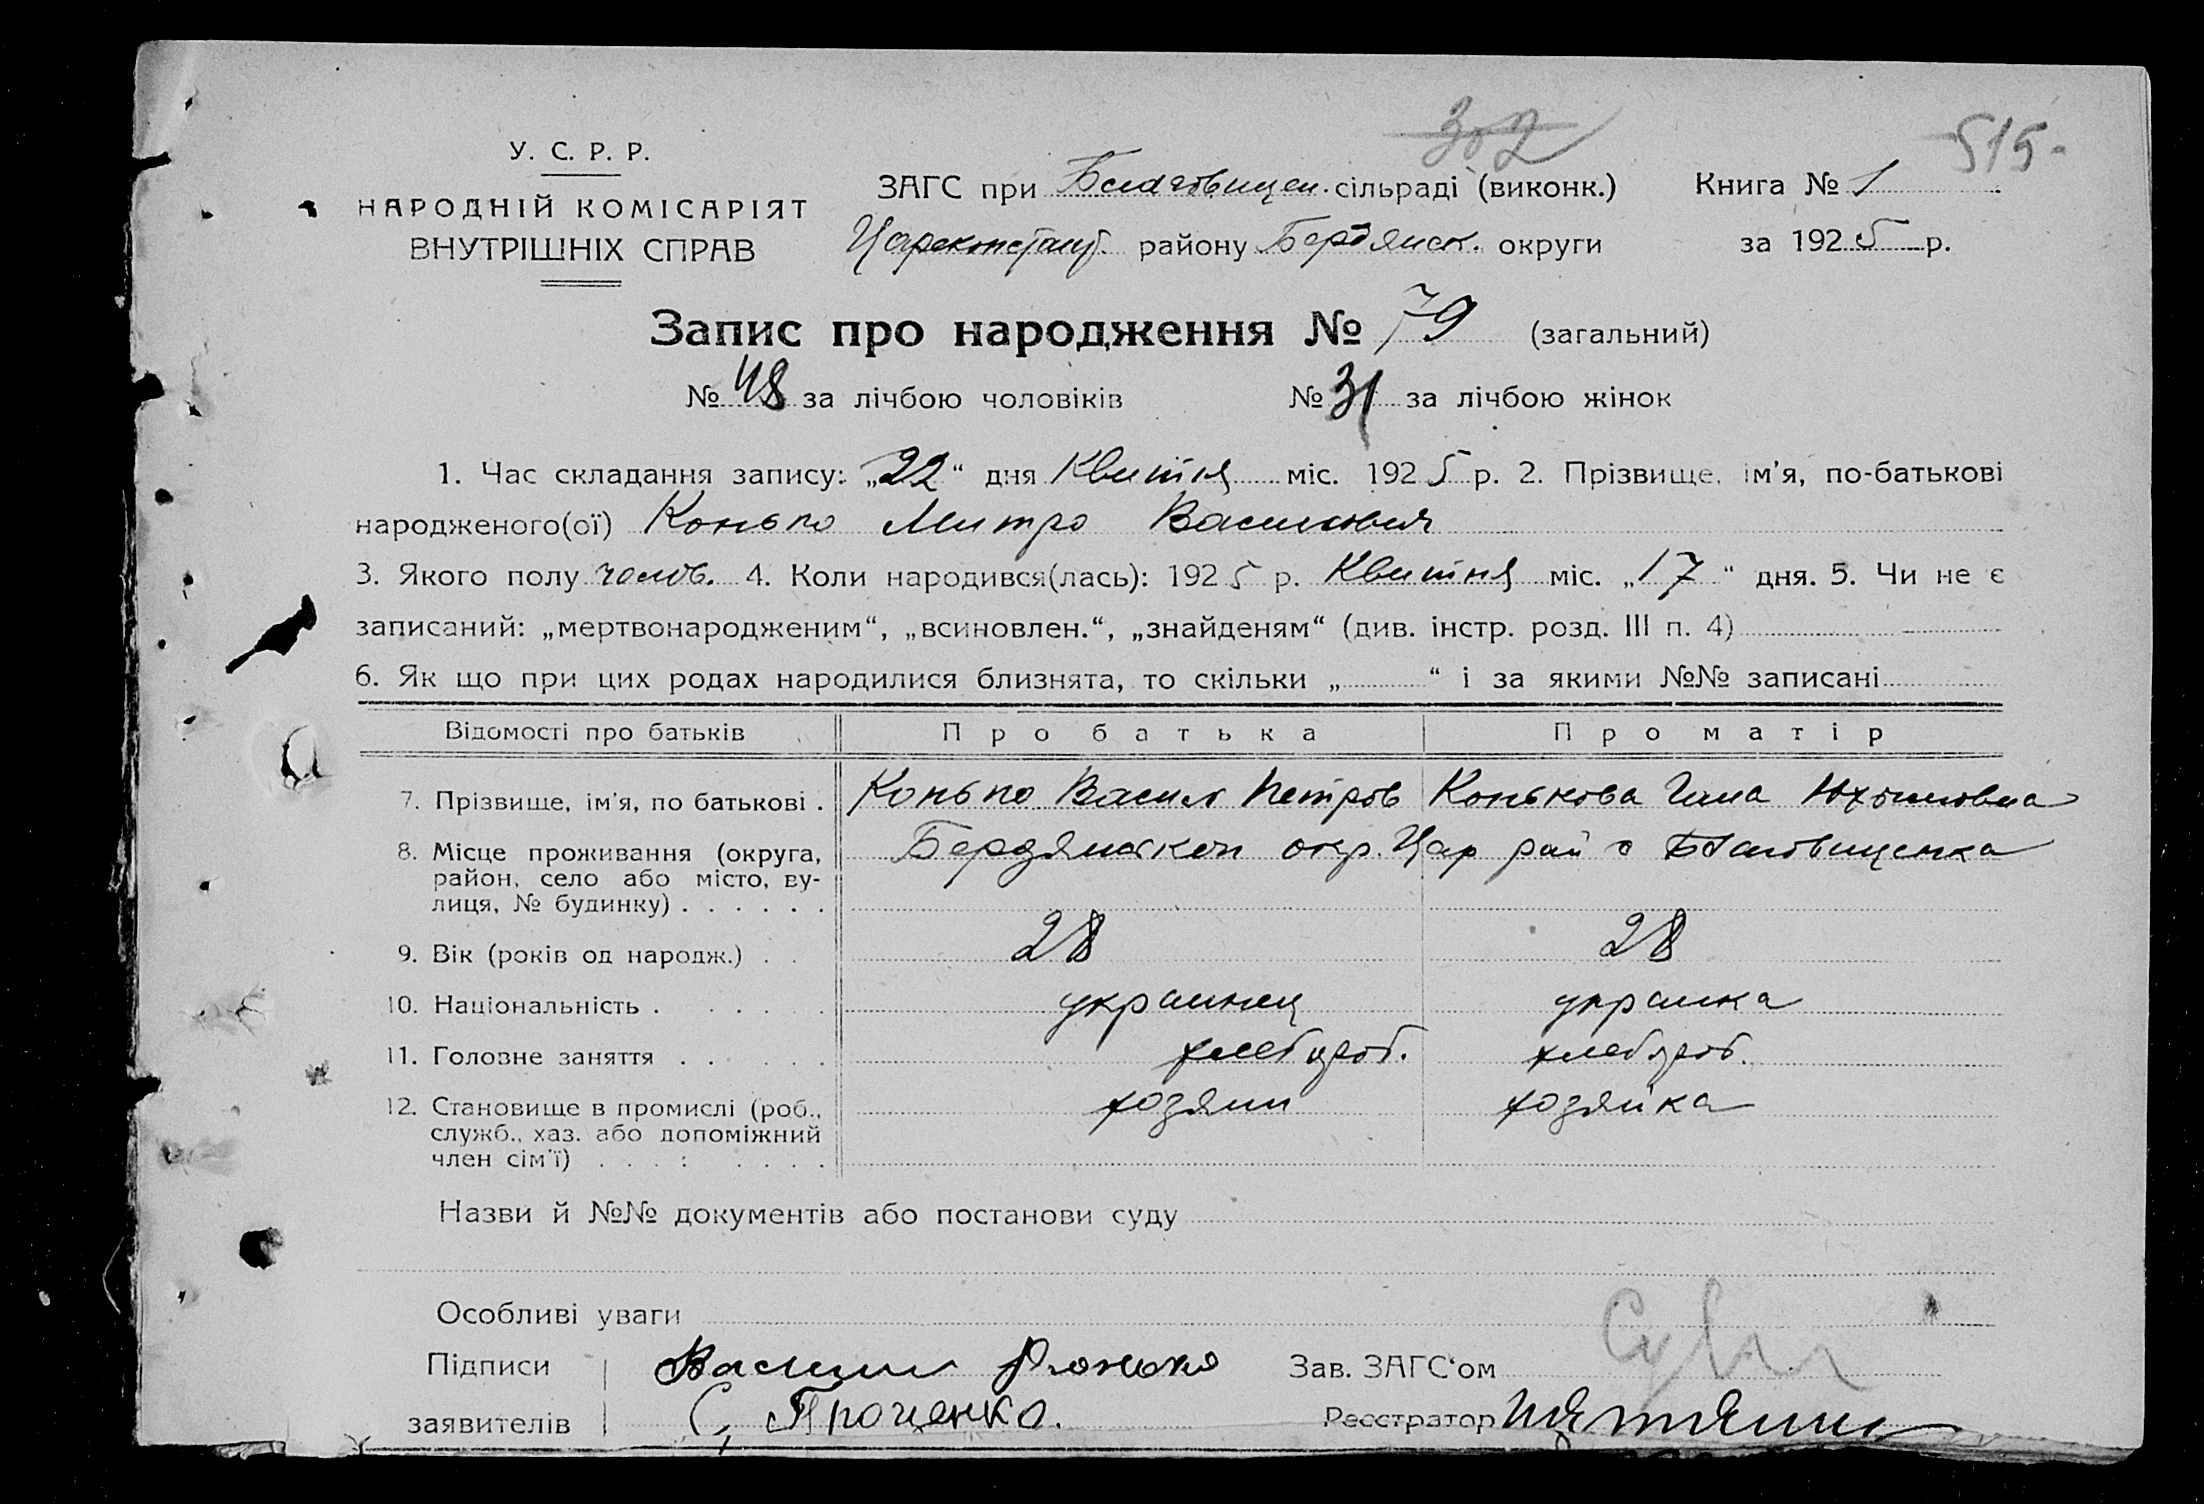 302
515
У. С. Р. Р.
НАРОДНІЙ КОМІСАРІЯТ
ВНУТРІШНІХ СПРАВ
ЗАГС при Благовищен. сільраді (виконк.)
Книга № 1
Цареконстант. району Бердянск. округи
за 1925 р.
Запис про народження № 79 (загальний)
№ 48 за лічбою чоловіків № 31 за лічбою жінок
1. Час складання запису: „22“ дня Квитня міс. 1925 р. 2. Прізвище, ім'я, по-батькові
народженого(ої) Конько Митро Василович
3. Якого полу чолов. 4. Коли народився(лась): 1925 р. Квитня міс. „17“ дня. 5. Чи не є
записаний: „мертвонародженим“, „всиновлен.“, „знайденям“ (див. інстр. розд. III п. 4)
6. Як що при цих родах народилися близнята, то скільки „ “ і за якими №№ записані
Відомості про батьків Про батька Про матір
7. Прізвище, ім'я, по батькові . Конько Васил Петров Конькова Юхимовна
8. Місце проживання (округа, Бердянской окр. Цар рай с Благовищенка
район, село або місто, ву-
лиця, № будинку) . . . . . .
9. Вік (років од народж.) . . 28 28
10. Національність . . . . . . украинец украинка
11. Головне заняття . . . . . хлебороб. хлебороб.
12. Становище в промислі (роб., хозяин хозяйка
служб., хаз. або допоміжний
член сім'ї) . . . : . . . .
Назви й №№ документів або постанови суду
Особливі уваги
Підписи Васили Конько Зав. ЗАГС'ом
заявителів С, Проценко. Реєстратор